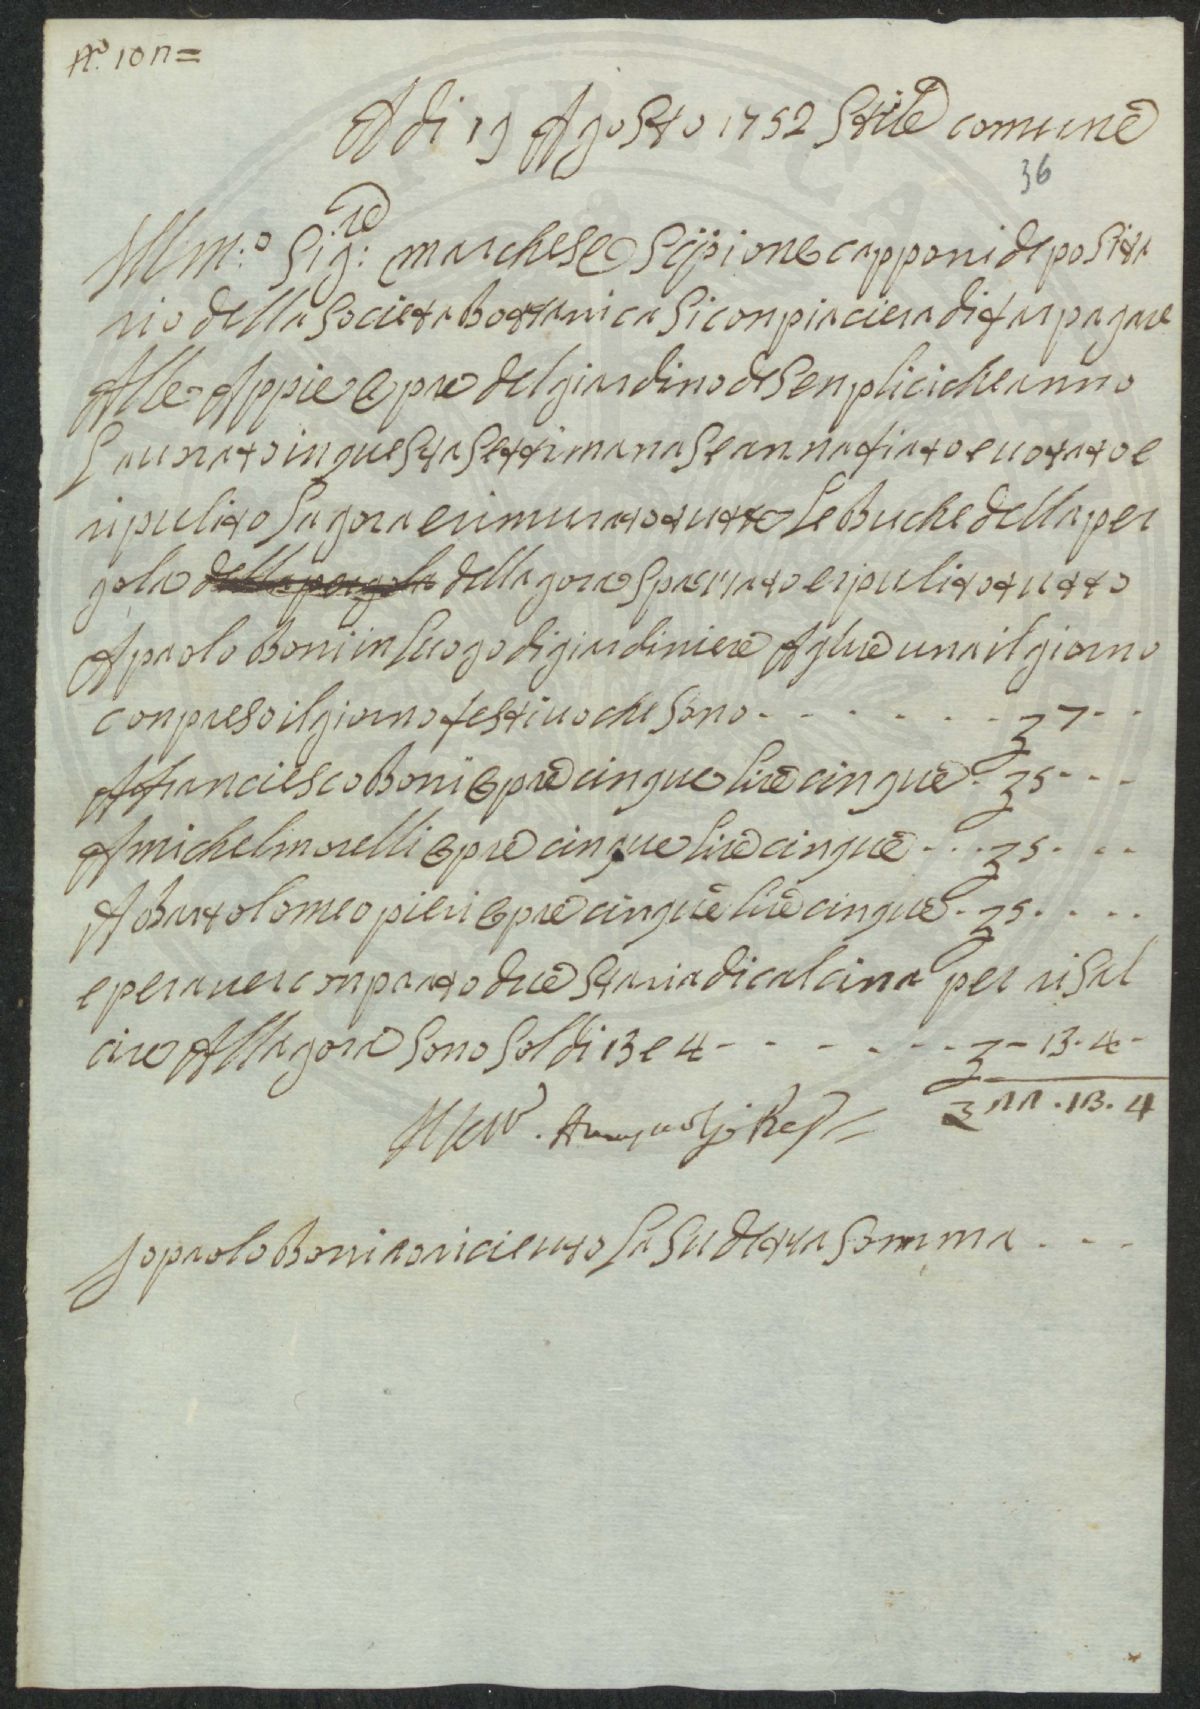 A di 19 Agosto 1752 Stile comune
36
Ill:mo Sig:re marchese Scipione capponi deposita
rio della Societa Bottanica Si conpiaciera di far pagare
Alle Appie Opre del giardino de Senplici che anno
Lavorato in questa Settimana Se annafiato e votato e
ripulito la gora e rimurato tutte le Buche della per
gola della pergola della gora spazzato e ripulito tutto
A paolo Boni in luogo di giardiniere A lire una il giorno
conpreso il giorno festivo che sono - - - - - - £ 7 - -
A franciesco Boni Opre cinque lire cinque - £ 5 - - -
A michel morelli Opre cinque lire cinque - - - £ 5 - - -
A Bartolomeo pieri Opre cinque lire cinque - £ 5 - - - -
e per aver conprato due Staia di calcina per risal
cire Alla gora Sono Soldi 13 e 4 - - - - - - - £ - 13 - 4 -
13 . 4
Io paolo Boni o riceuto la Sudetta Somma - - -